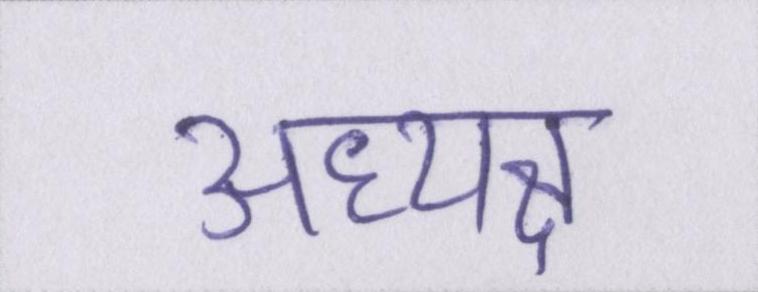 अध्यक्ष